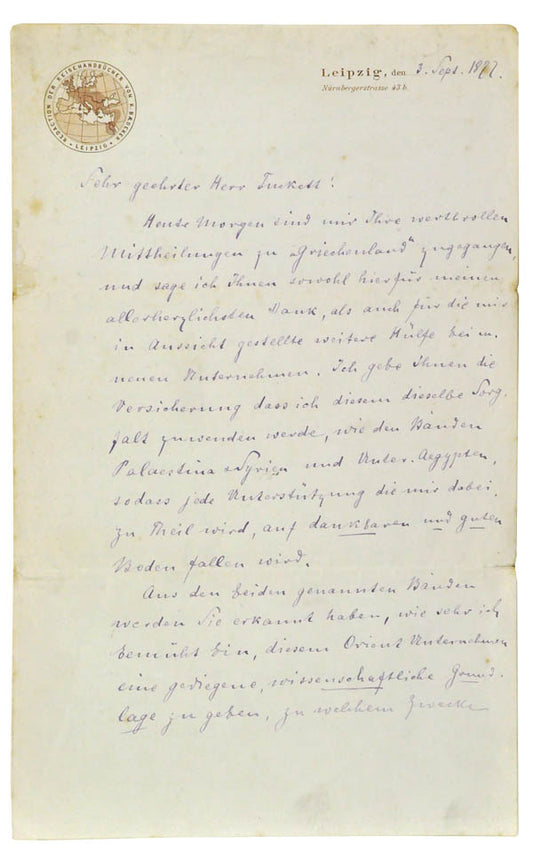 REDACTION DER REISEHANDBÜCHER VON K. BAEDEKER
• LEIPZIG •
Leipzig, den 3. Sept. 1877.
Nürnbergerstrasse 43 b.
Sehr geehrter Herr Tuckett!
Heute Morgen sind mir Ihre werthvollen
Mittheilungen zu „Griechenland" zugegangen,
und sage ich Ihnen sowohl hierfür meinen
allerherzlichsten Dank, als auch für die mir
in Aussicht gestellte weitere Hülfe bei m.
neuen Unternehmen. Ich gebe Ihnen die
Versicherung dass ich diesem dieselbe Sorg-
falt zuwenden werde, wie den Bänden
Palaestina & Syrien und Unter-Aegypten,
sodass jede Unterstützung die mir dabei
zu Theil wird, auf dankbaren und guten
Boden fallen wird.
Aus den beiden genannten Bänden
werden Sie erkannt haben, wie sehr ich
bemüht bin, diesem Orient Unternehmen
eine gediegene, wissenschaftliche Grund-
lage zu geben, zu welchem Zwecke